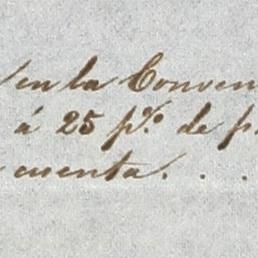 en la Conven
á 25 p%. de p
cuenta. . .